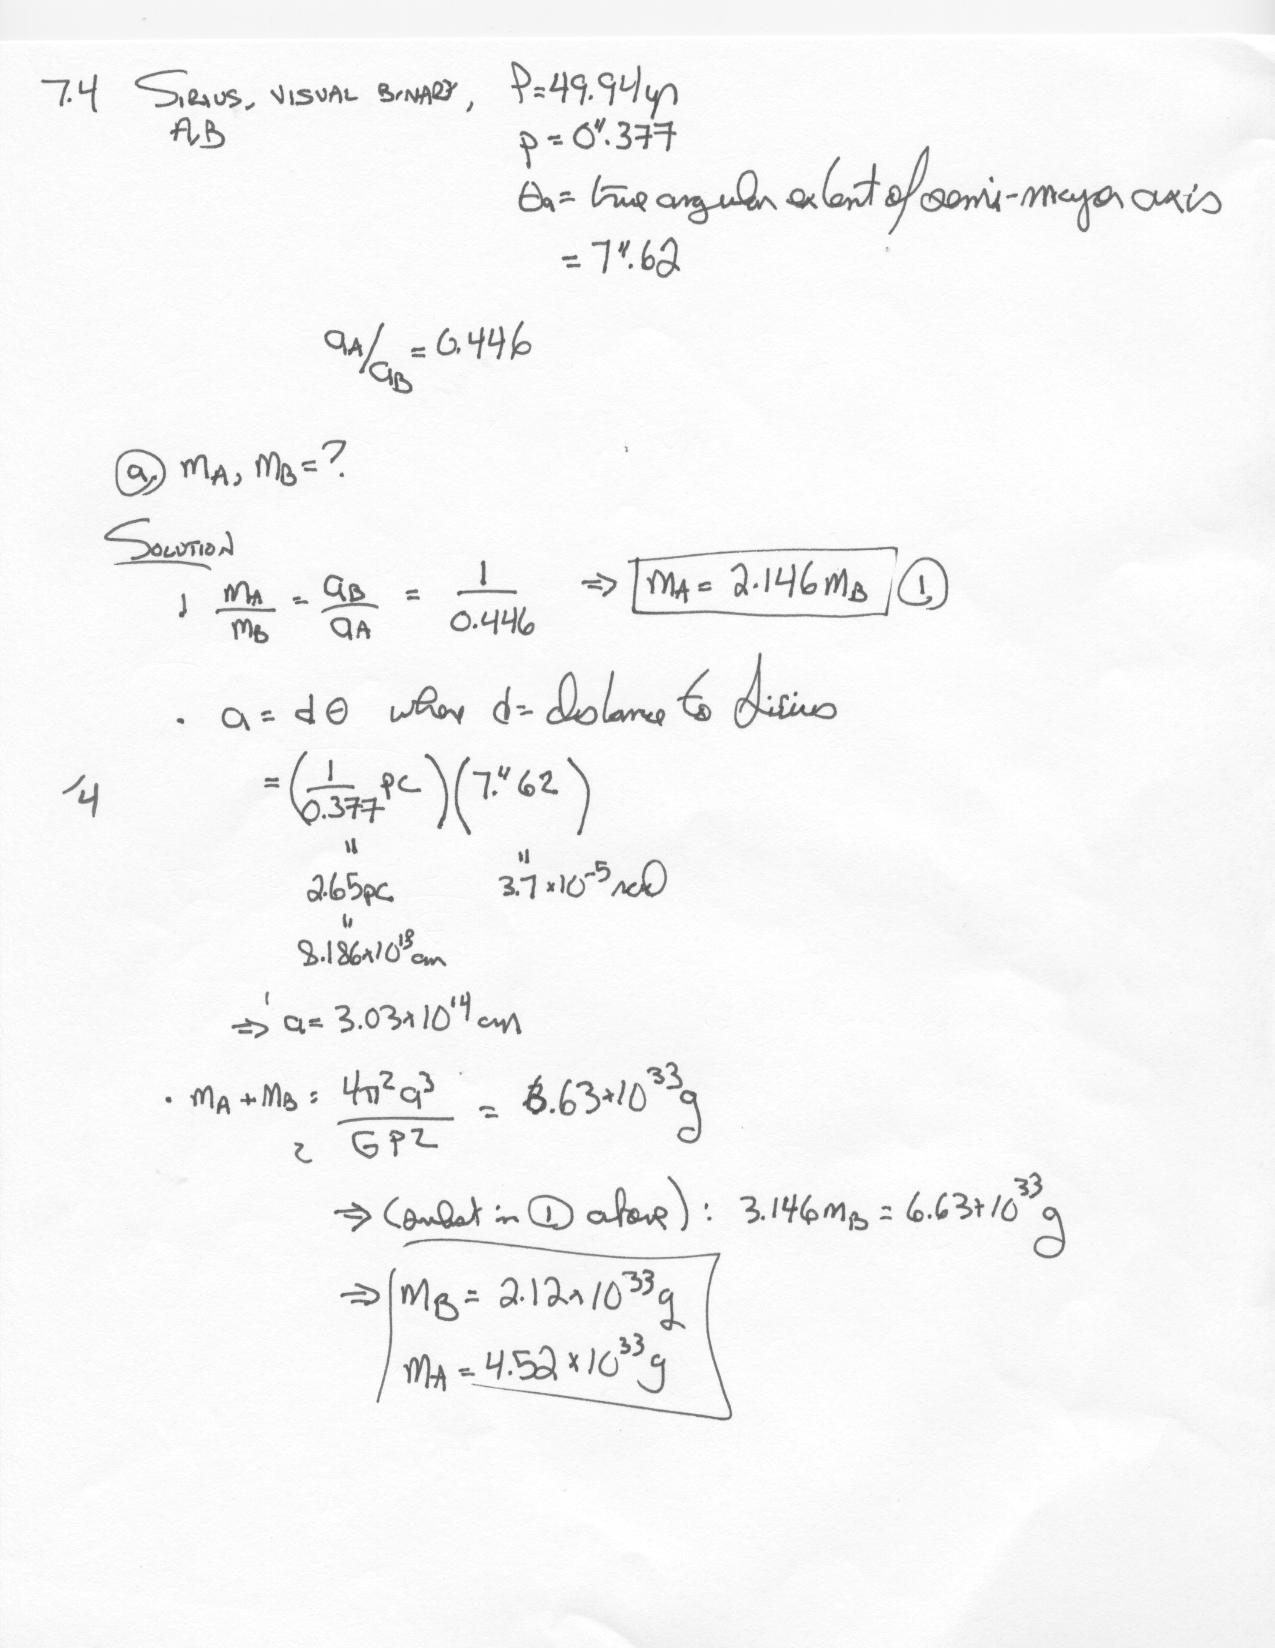 7.4 SIRIUS, VISUAL BINARY, P=49.94yr
AB
p = 0".377
θa = true angular extent of semi-major axis
= 7".62
aA/aB = 0.446
(a) mA, mB = ?
SOLUTION
mA/mB = aB/aA = 1/0.446 ⇒ mA = 2.146 mB (1)
· a = dθ where d = distance to Sirius
= (1/0.377 pc)(7."62)
/4
" "
2.65pc 3.7×10^-5 rad
"
8.186×10^18 cm
⇒ a = 3.03×10^14 cm
· mA + mB = 4π²a³/GP² = 6.63×10^33 g
⇒ (subst in (1) above): 3.146 mB = 6.63×10^33 g
⇒ mB = 2.12×10^33 g
mA = 4.52×10^33 g